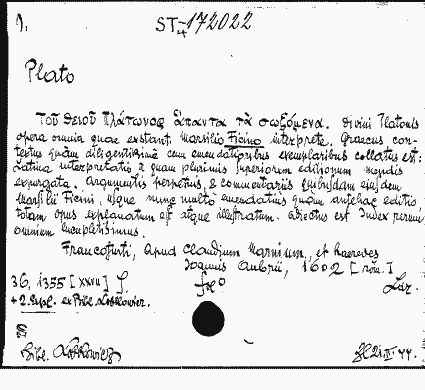 1.
ST-4-172022
Plato
Τοῦ θειοῦ Πλάτωνος ἅπαντα τὰ σωζόμενα. Divini Platonis
opera omnia quae exstant, Marsilio Ficino interprete. Graecus con-
textus quàm diligentissimè cum emendatioribus exemplaribus collatus est:
Latina interpretatio à quam plurimis superiorum editionum mendis
expurgata. Argumentis perpetuis, & commentariis quibusdam eiusdem
Marsilii Ficini, iisque nunc multo emendatius quàm antehac editis,
totum opus explanatum est atque illustratum. adiectus est Index rerum
omnium locupletissimus.
Francofurti, apud Claudium Marnium, et haeredes
Ioannis Aubrii, 1602 [röm.]
36, 1355 [XXVII] S.
fxº
Laz.
+ 2. Expl. ex Bibl. Lobkowicz.
Bibl. Lobkowicz
21.II.44.